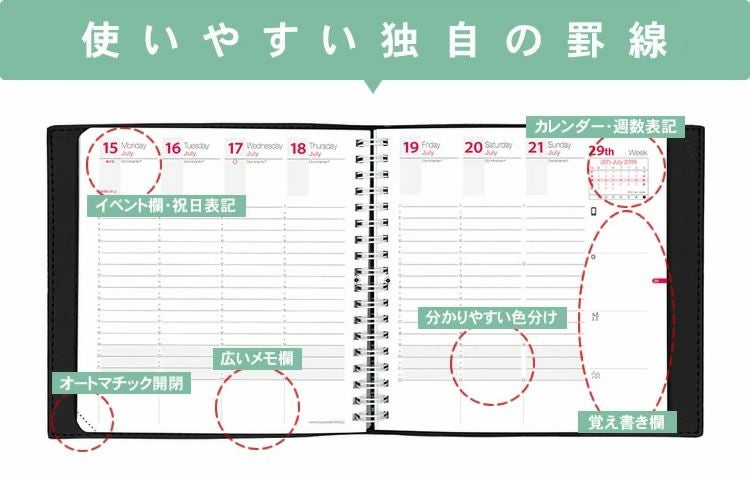 使いやすい独自の罫線
カレンダー・週数表記
15 Monday
July
16 Tuesday
July
17 Wednesday
July
18 Thursday
July
19 Friday
July
20 Saturday
July
21 Sunday
July
29th Week
(07) July 2019
イベント欄・祝日表記
分かりやすい色分け
広いメモ欄
オートマチック開閉
覚え書き欄